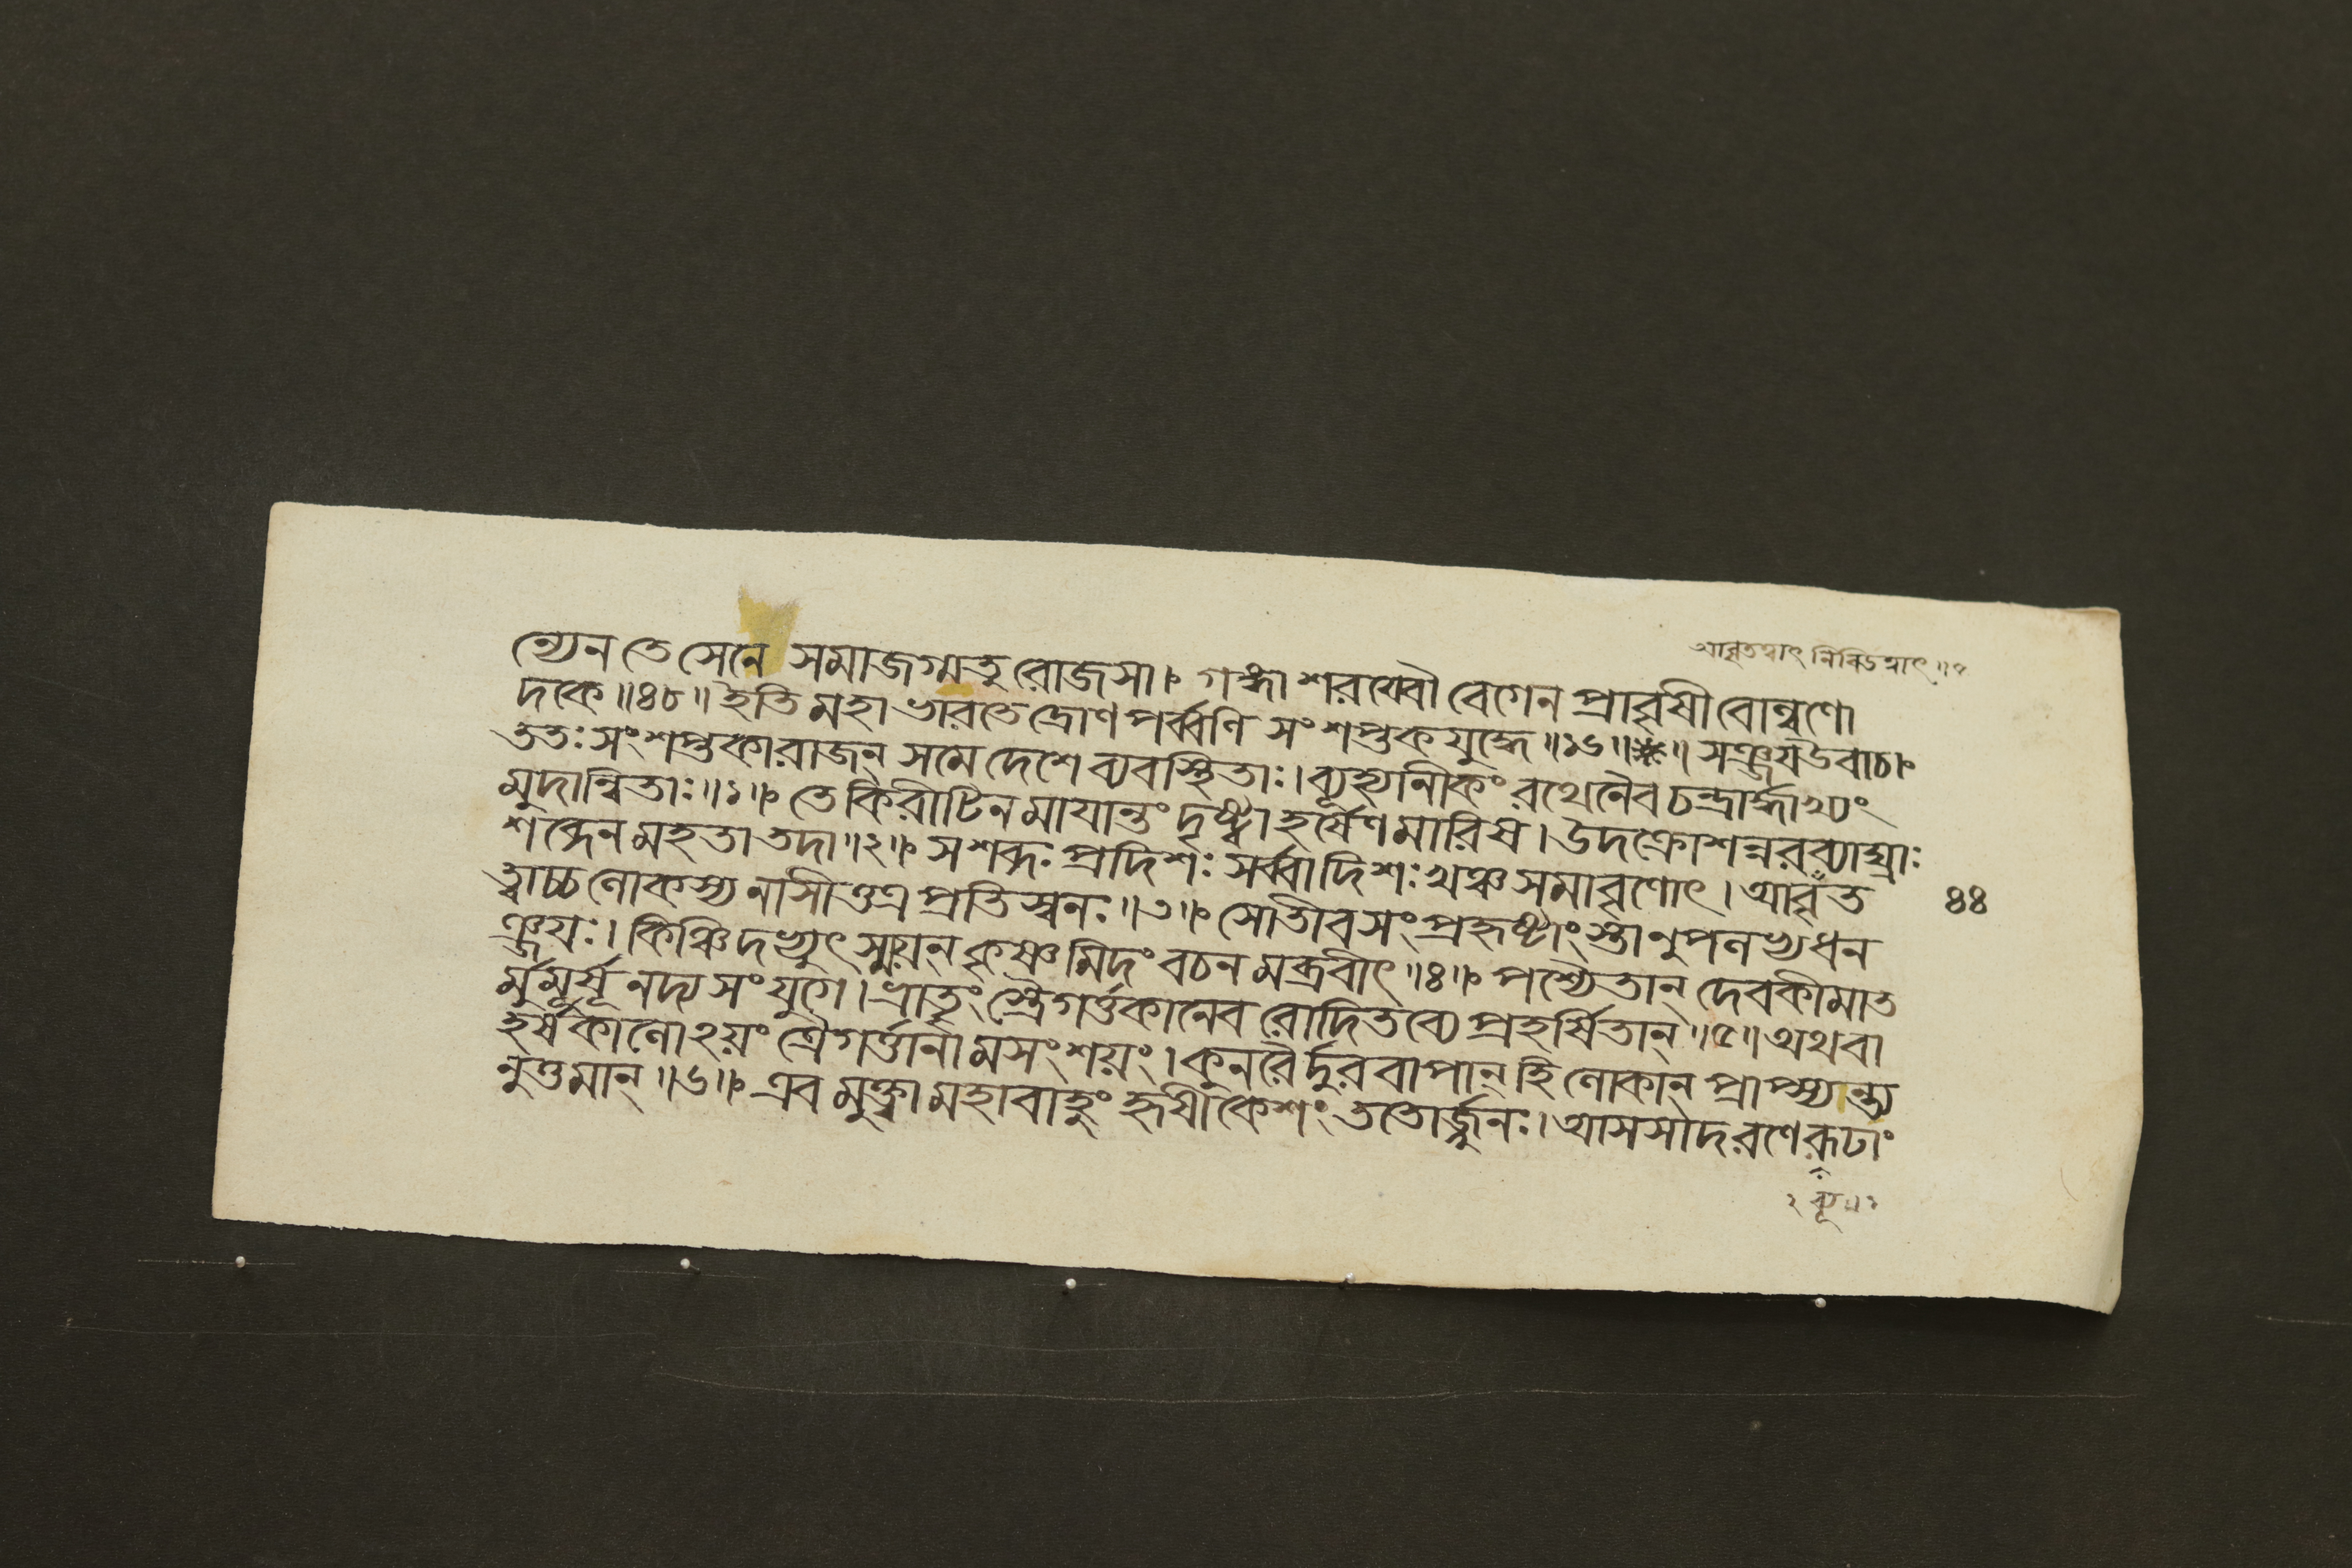 আবৃতত্বাৎ নিবিডত্বাৎ ॥৭
ন্যেন তে সেনে সমাজগ্মতু রোজসা। গঙ্গা শরয্বৌ বেগেন প্রাবৃষী বোল্বণো
দকে ॥৪৮॥ ইতি মহাভারতে দ্রোণপর্ব্বণি সংশপ্তকযুদ্ধে ॥১৬॥ সঞ্জয়উবাচ।
ততঃ সংশপ্তকারাজন্ সমে দেশে ব্যবস্থিতাঃ। ব্যূহ্যানীকং রথেনৈব চন্দ্রার্দ্ধাখ্যং
মুদান্বিতাঃ ॥১॥ তে কিরীটিন মাযান্তং দৃষ্ট্বা হর্ষেণ মারিষ। উদক্রোশন্নরব্যাঘ্রাঃ
শব্দেন মহতা তদা ॥২॥ স শব্দঃ প্রদিশঃ সর্ব্বাদিশঃ খঞ্চ সমাবৃণোৎ। আবৃত
ত্বাচ্চ লোকস্য নাসীত্তত্র প্রতিস্বনঃ ॥৩॥ সোতীবসংপ্রহৃষ্টাংস্তানুপলভ্য ধন
ঞ্জয়ঃ। কিঞ্চিদভ্যুৎস্ময়ন্ কৃষ্ণ মিদং বচন মব্রবীৎ ॥৪॥ পশ্যৈতান্ দেবকীমাত
র্মুমূর্ষূ নদ্য সংযুগে। ভ্রাতৃং স্ত্রৈগর্ত্তকানেব রোদিতব্যে প্রহর্ষিতান্ ॥৫॥ অথবা
হর্ষকালোঽয়ং ত্রৈগর্ত্তানা মসংশয়ং। কুনরৈর্দুরবাপান্ হি লোকান্ প্রাপ্স্যন্ত্য
নুত্তমান্ ॥৬॥ এব মুক্ত্বা মহাবাহুং হৃষীকেশং ততোর্জ্জুনঃ। আসসাদ রণে রূঢাং
৪৪
২ ব্যূ॥১